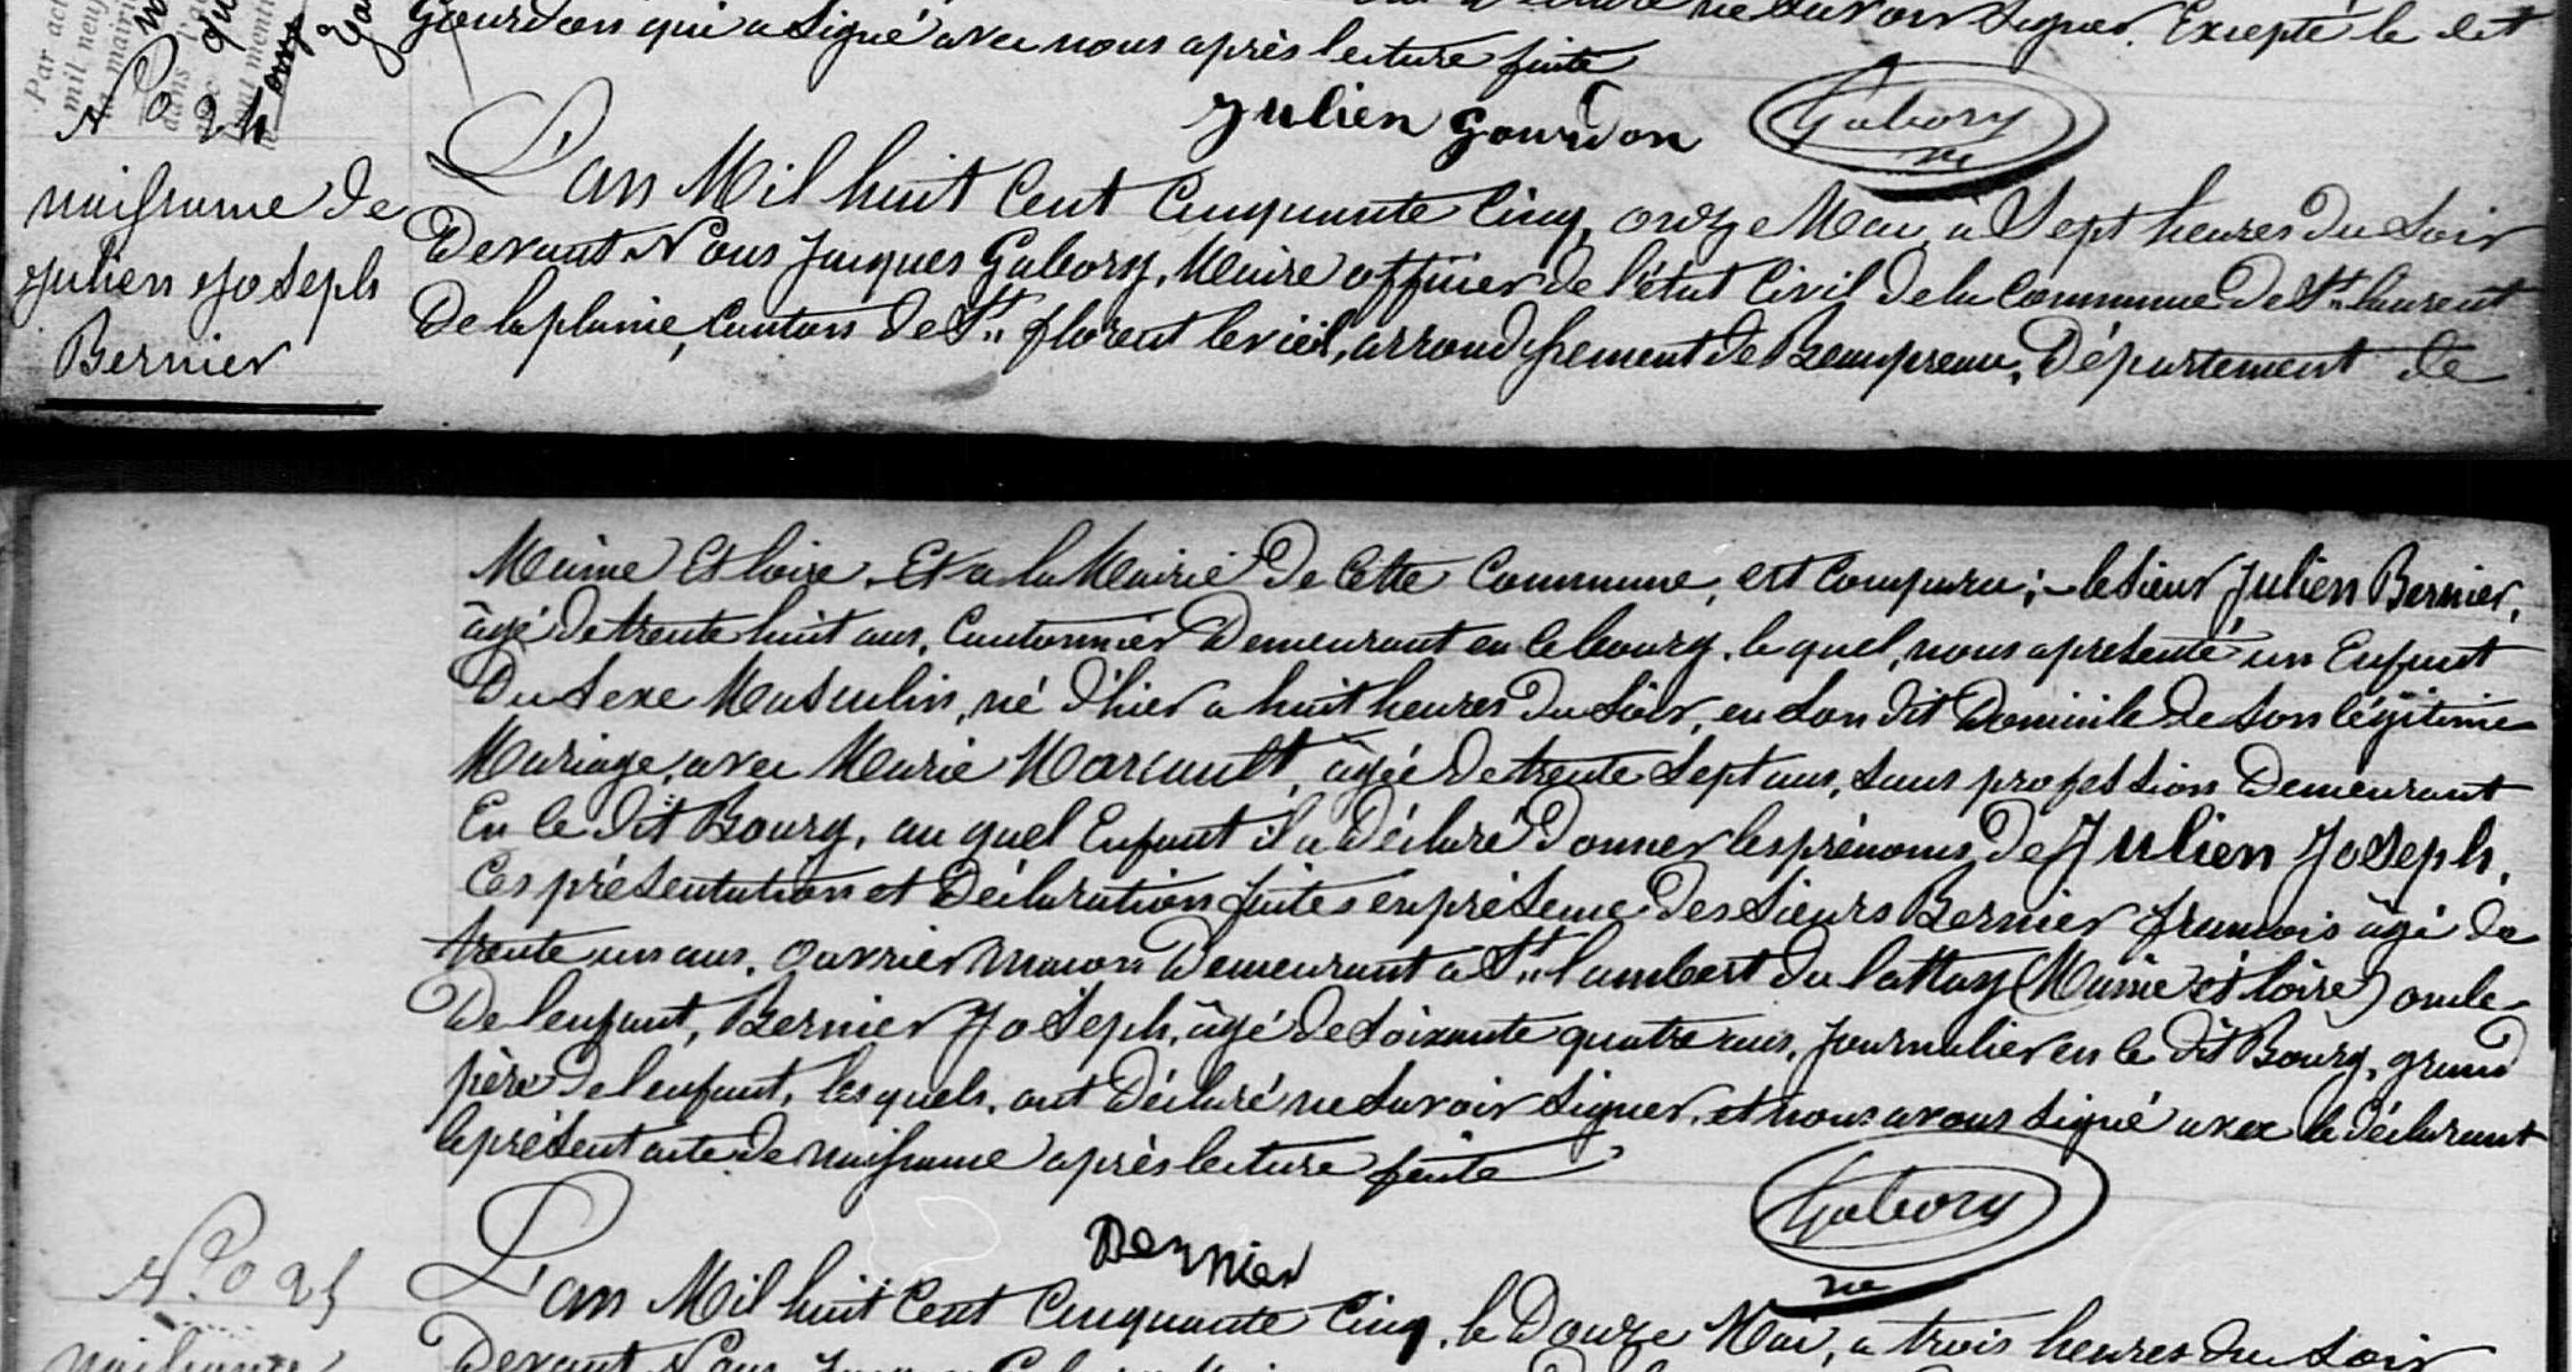 Par act
mil neuf
la mairi
dans l'a
N° 24
Gourdon qui a signé avec nous après lecture faite ne savoir signer. Excepté le dit
Julien Gourdon Gabory
re
naissance de
Julien Joseph
Bernier
L'an Mil huit Cent Cinquante Cinq, onze Mai, à Sept heures du Soir
Devant Nous Jacques Gabory, Maire officier de l'état Civil de la Commune de St. laurent
De laplaine, Canton de St. florent levieil, arrondissement de Beaupreau, Département de
Maine Et loire. Et a la Mairie De Cette Commune, est comparu; le sieur Julien Bernier,
âgé de trente huit ans, Cantonnier Demeurant en le bourg, le quel, nous a présenté un Enfant
Du Sexe Masculin, né d'hier a huit heures Du Soir, en son dit Domicile de son légitime
Mariage, avec Marie Marcault, âgée de trente Sept ans, sans profession Demeurant
En le dit Bourg, au quel Enfant il a Déclaré Donner les prénoms De Julien Joseph,
Ces présentation et Déclaration faites en présence Des Sieurs Bernier francois âgé de
trente un ans, ouvrier macon Demeurant a St. lambert du lattay (Maine et loire) oncle
De lenfant, Bernier Joseph, âgé de Soixante quatre ans, Journalier en le dit Bourg, grand
père de lenfant, les quels, ont Déclaré ne Savoir Signer, et nous avons signé avec le déclarant
le présent acte de naissance après lecture faite
Gabory
re
Bernier
N° 25
naissance
L'an Mil huit Cent Cinquante Cinq, le Douze Mai, a trois heures du Soir
Devant Nous